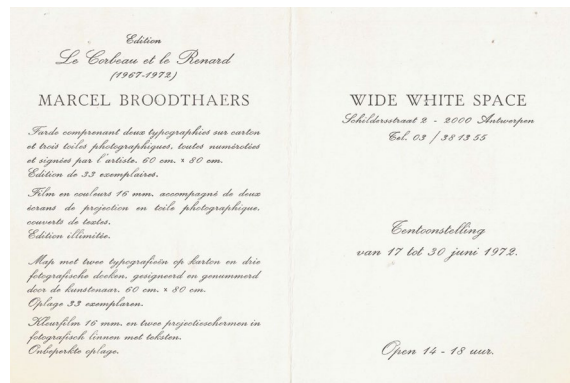 Edition
Le Corbeau et le Renard
(1967-1972)
MARCEL BROODTHAERS
Farde comprenant deux typographies sur carton
et trois toiles photographiques, toutes numérotées
et signées par l'artiste. 60 cm. x 80 cm.
Edition de 33 exemplaires.
Film en couleurs 16 mm. accompagné de deux
écrans de projection en toile photographique,
couverts de textes.
Edition illimitée.
Map met twee typografieën op karton en drie
fotografische doeken, gesigneerd en genummerd
door de kunstenaar. 60 cm. x 80 cm.
Oplage 33 exemplaren.
Kleurfilm 16 mm. en twee projectieschermen in
fotografisch linnen met teksten.
Onbeperkte oplage.
WIDE WHITE SPACE
Schildersstraat 2 - 2000 Antwerpen
Tel. 03 / 38 13 55
Tentoonstelling
van 17 tot 30 juni 1972.
Open 14 - 18 uur.